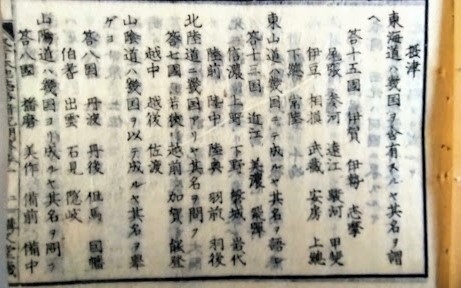 摂津
東海道ハ幾国ヲ含有スルヤ其名ヲ謂
ヘ
答十五國 伊賀 伊勢 志摩
尾張 参河 遠江 駿河 甲斐
伊豆 相模 武蔵 安房 上総
下總 常陸
東山道ハ幾国ヨリ成ルヤ其名ヲ語レ
答十三国 近江 美濃 飛騨
信濃 上野 下野 磐城 岩代
陸前 陸中 陸奥 羽前 羽後
北陸道ニ幾國アリヤ其名ヲ問フ
答七國 若狭 越前 加賀 能登
越中 越後 佐渡
山陰道ハ幾国ヲ以テ成ルヤ其名ヲ挙
ゲヨ
答八國 丹波 丹後 但馬 因幡
伯耆 出雲 石見 隠岐
山陽道ハ幾國ヨリ成ルヤ其名ヲ問フ
答八國 播磨 美作 備前 備中